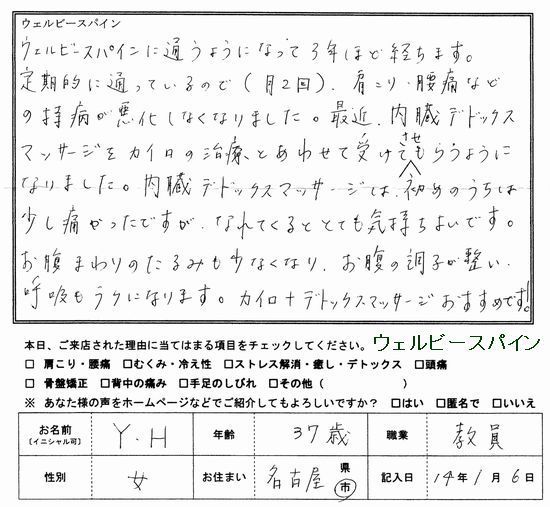 ウェルビースパイン
ウェルビースパインに通うようになって3年ほど経ちます。
定期的に通っているので(月2回)、肩こり・腰痛など
の持病が悪化しなくなりました。最近、内臓デトックス
マッサージをカイロの治療とあわせて受けさせてもらうように
なりました。内臓デトックスマッサージは、初めのうちは
少し痛かったですが、なれてくるととても気持ちよいです。
お腹まわりのたるみも少なくなり、お腹の調子が整い、
呼吸もラクになります。カイロ+デトックスマッサージおすすめです!
本日、ご来店された理由に当てはまる項目をチェックしてください。ウェルビースパイン
□ 肩こり・腰痛 □むくみ・冷え性 □ストレス解消・癒し・デトックス □頭痛
□ 骨盤矯正 □背中の痛み □手足のしびれ □その他( )
※ あなた様の声をホームページなどでご紹介してもよろしいですか? □はい □匿名で □いいえ
お名前 [イニシャル可] Y.H 年齢 37歳 職業 教員
性別 女 お住まい 名古屋 県 市 記入日 14年1月6日